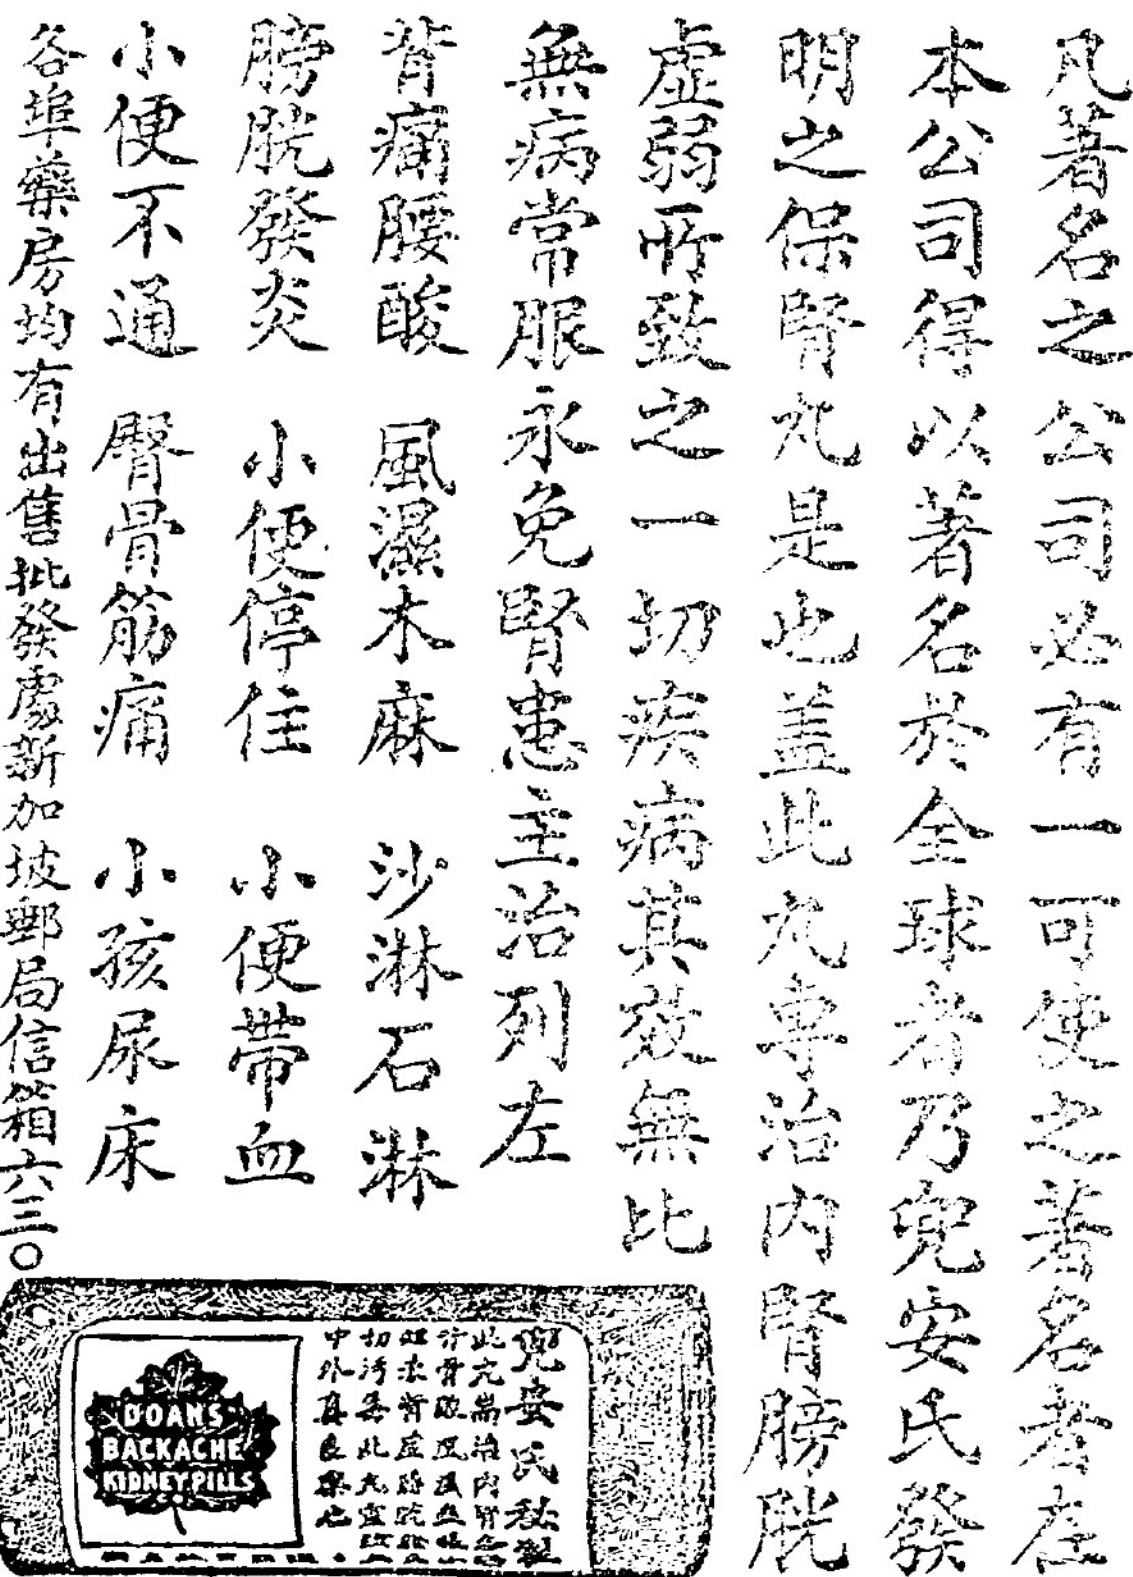 凡著名之公司必有一可使之著名者在
本公司得以著名於全球者乃兜安氏發
明之保腎丸是也盖此丸専治內腎膀胱
虛弱所致之一切疾病其效無比
無病常服永免腎患主治列左
背痛腰酸 風濕木麻 沙淋石淋
膀胱發炎 小便停住 小便帶血
小便不通 臀骨筋痛 小孩尿床
各埠藥房均有出售批發處新加坡郵局信箱六三〇
兜安氏秘製
中外真良藥也
DOANS
BACKACHE
KIDNEY PILLS